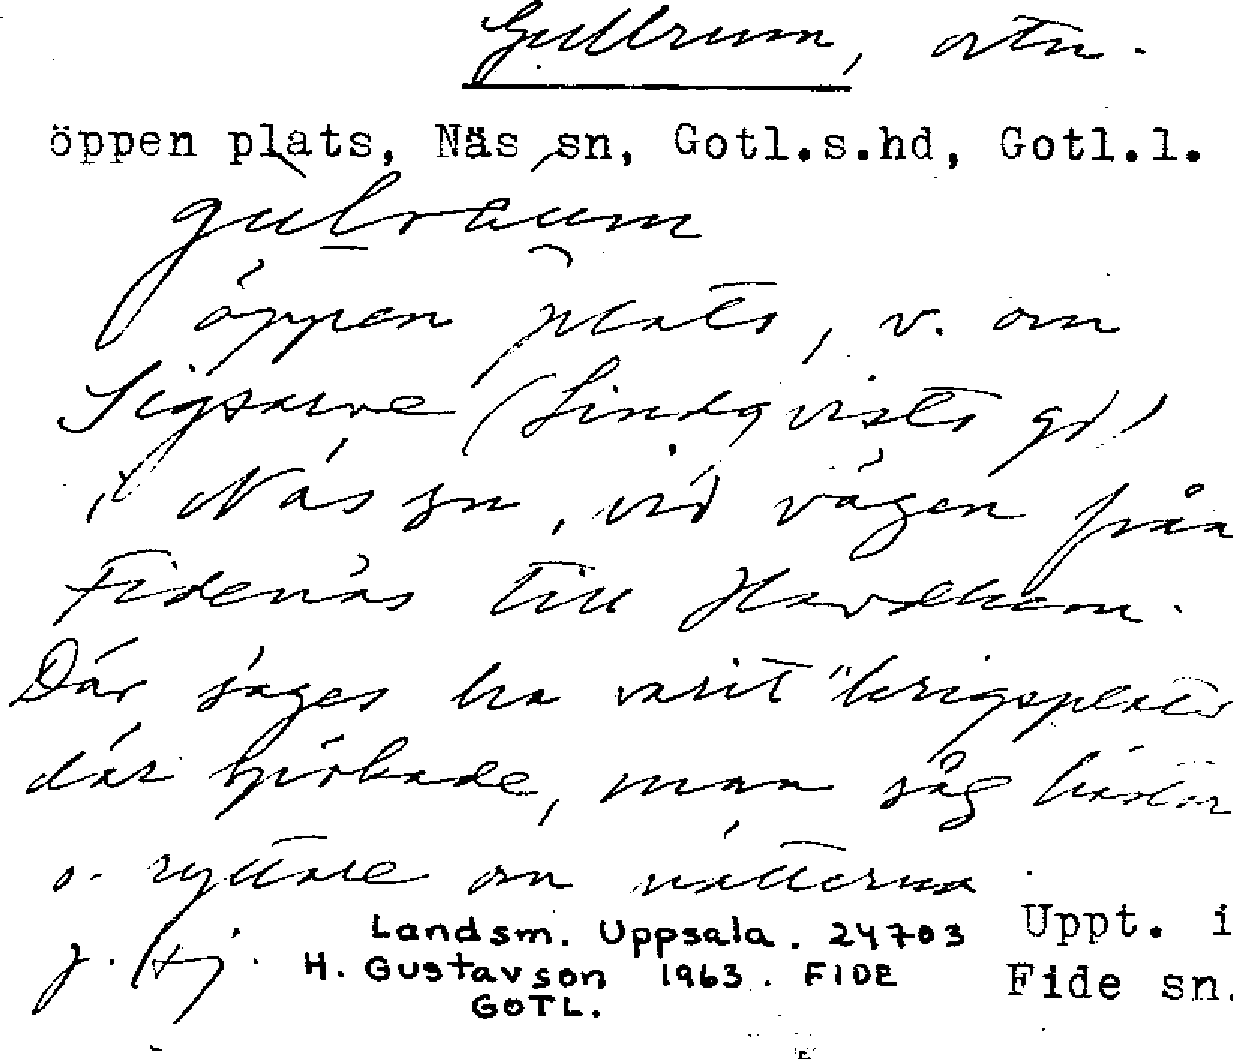 Gullrum, ortn.
öppen plats, Näs sn, Gotl.s.hd, Gotl.l.
gulraum
öppen plats, v. om
Sigsarve (Lindqvists gd)
i Näs sn, vid vägen från
Fidenäs till Havdhem.
Där säges ha varit "krigsplats
där spökade, man såg hästar
o. ryttare om nätterna
Uppt. i
Landsm. Uppsala. 24703
H. Gustavson 1963. FIDE
Fide sn.
GOTL.